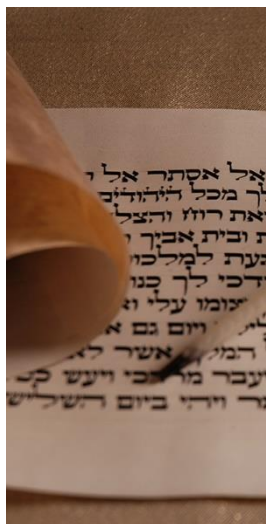 אל אסתר אל
לך מכל היהודים
זאת רוח והצל
ת ובית אביך
עת למלכו
דכי לך כנו
צומו עלי וא
ויום גם א
המלך אשר לא
עבר ויעש
ר ויהי ביום השליש